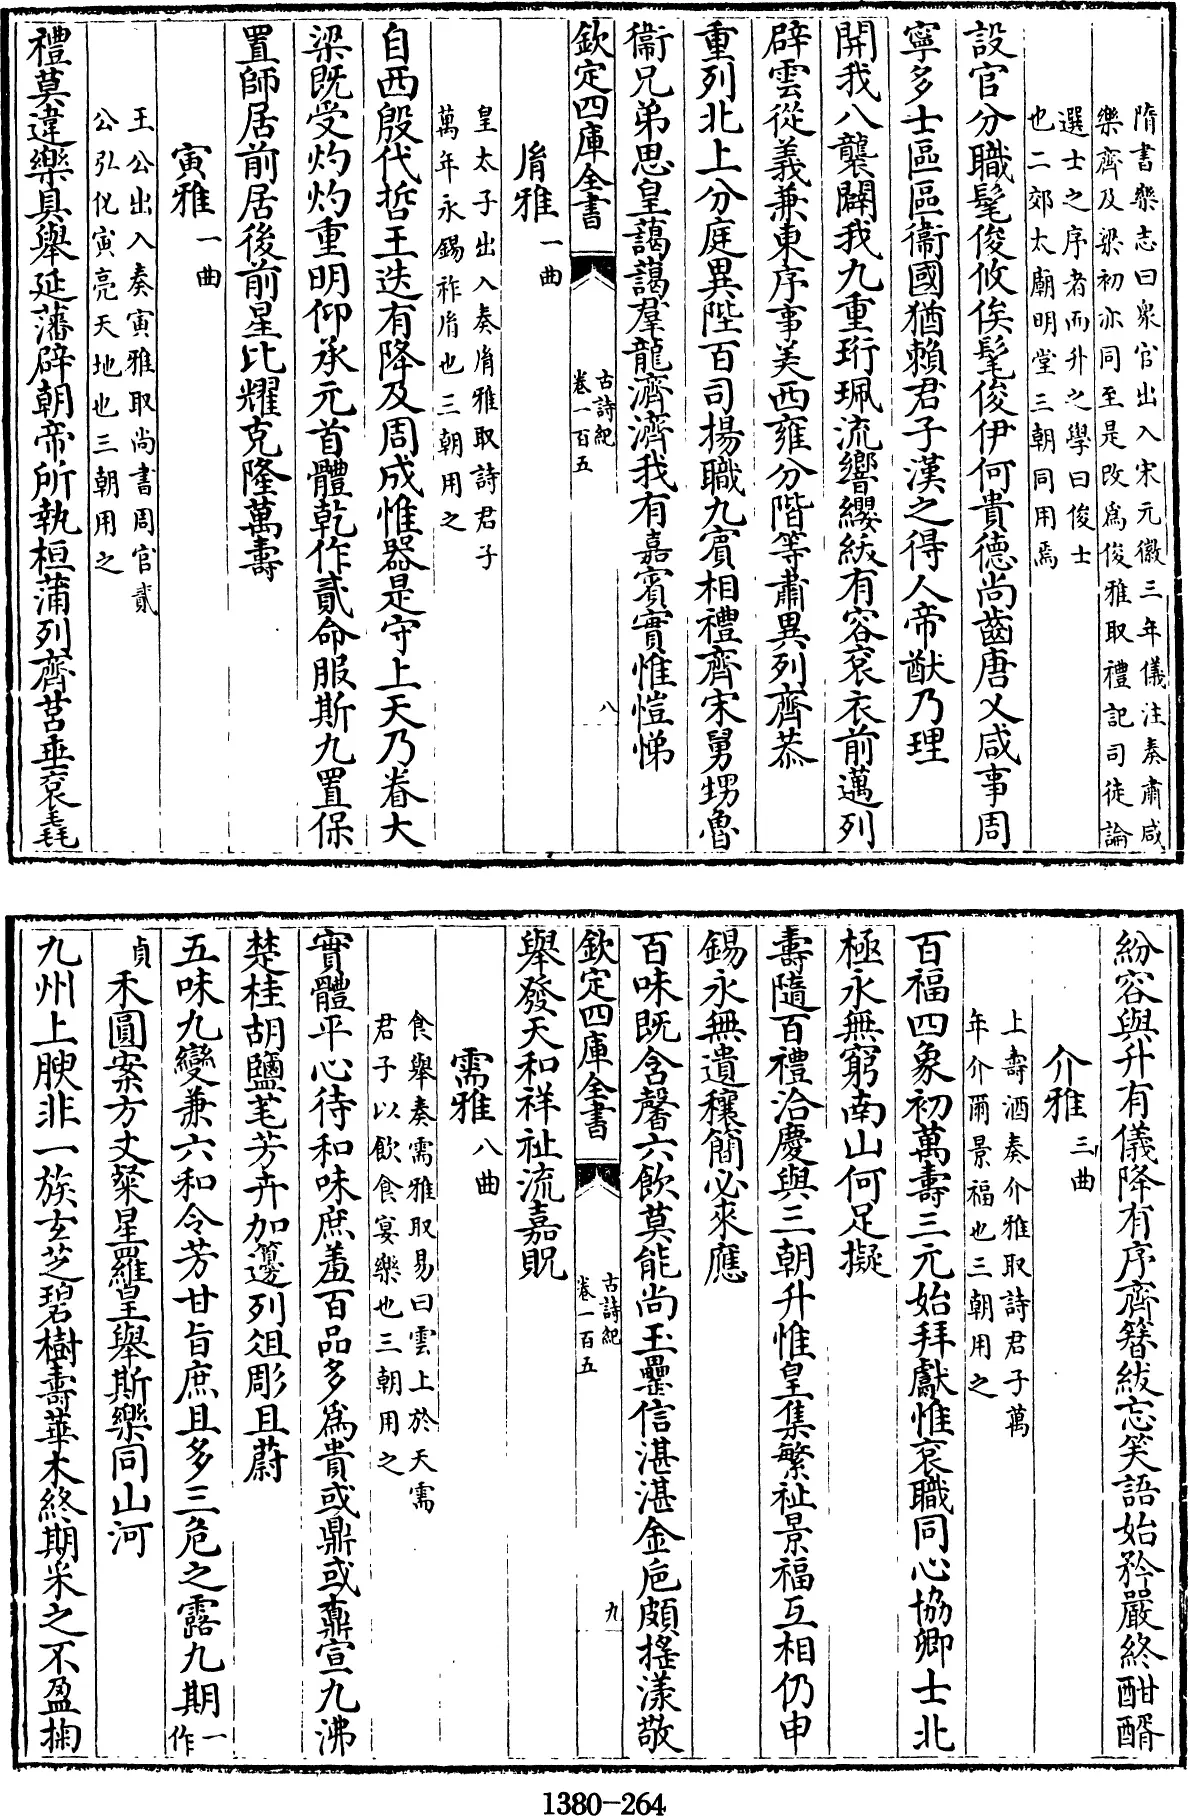 隋書樂志曰衆官出入宋元徽三年儀注奏肅咸
樂齊及梁初亦同至是改爲俊雅取禮記司徒論
選士之序者而升之學曰俊士
也二郊太廟明堂三朝同用焉
設官分職髦俊攸俟髦俊伊何貴德尚齒唐乂咸事周
寧多士區區衞國猶賴君子漢之得人帝猷乃理
開我八襲闢我九重珩珮流響纓紱有容衮衣前邁列
辟雲從義兼東序事美西雍分階等肅異列齊恭
重列北上分庭異陛百司揚職九賔相禮齊宋舅甥魯
衞兄弟思皇藹藹羣龍濟濟我有嘉賔實惟愷悌
欽定四庫全書
古詩紀
卷一百五
八
胤雅一曲
皇太子出入奏胤雅取詩君子
萬年永錫祚胤也三朝用之
自西殷代哲王迭有降及周成惟器是守上天乃眷大
梁旣受灼灼重明仰承元首體乾作貳命服斯九置保
置師居前居後前星比耀克隆萬壽
寅雅一曲
王公出入奏寅雅取尚書周官貳
公弘化寅亮天地也三朝用之
禮莫違樂具舉延藩辟朝帝所執桓蒲列齊莒垂衮毳
紛容與升有儀降有序齊簪紱忘笑語始矜嚴終酣醑
介雅三曲
上壽酒奏介雅取詩君子萬
年介爾景福也三朝用之
百福四象初萬壽三元始拜獻惟衮職同心協卿士北
極永無窮南山何足擬
壽隨百禮洽慶與三朝升惟皇集繁祉景福互相仍申
錫永無遺穰簡必來應
百味旣含馨六飲莫能尚玉罍信湛湛金巵頗搖漾敬
欽定四庫全書
古詩紀
卷一百五
九
舉發天和祥祉流嘉貺
需雅八曲
食舉奏需雅取易曰雲上於天需
君子以飲食宴樂也三朝用之
實體平心待和味庶羞百品多爲貴或鼎或鼒宣九沸
楚桂胡鹽芼芳卉加籩列俎彫且蔚
五味九變兼六和令芳甘旨庶且多三危之露九期一作
貞禾圓案方丈粲星羅皇舉斯樂同山河
九州上腴非一族玄芝碧樹壽華木終期采之不盈掬
1380-264